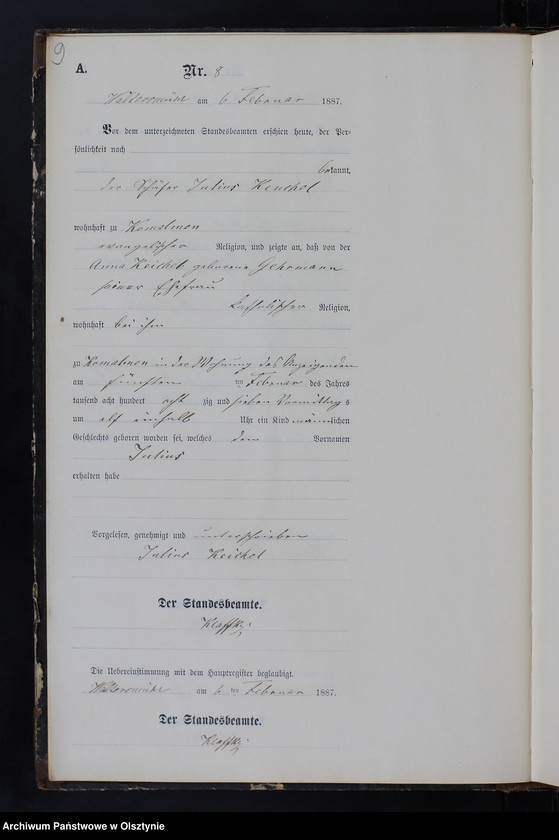 9
A.
Nr. 8
Waltersmühl am 6 Februar 1887.
Vor dem unterzeichneten Standesbeamten erschien heute, der Per-
sönlichkeit nach
bekannt,
der Schäfer Julius Keuchel
wohnhaft zu Komalmen
evangelischer Religion, und zeigte an, daß von der
Anna Keichel geborene Gehrmann
seiner Ehefrau
katholischer Religion,
wohnhaft bei ihm
zu Komalmen in der Wohnung des Anzeigenden
am fünften ten Februar des Jahres
tausend acht hundert acht zig und sieben Vormittag s
um elf einhalb Uhr ein Kind männlichen
Geschlechts geboren worden sei, welches den Vornamen
Julius
erhalten habe
Vorgelesen, genehmigt und unterschrieben
Julius Keichel
Der Standesbeamte.
Klaffki
Die Uebereinstimmung mit dem Hauptregister beglaubigt.
Waltersmühl am 6 ten Februar 1887.
Der Standesbeamte.
Klaffki
Archiwum Państwowe w Olsztynie